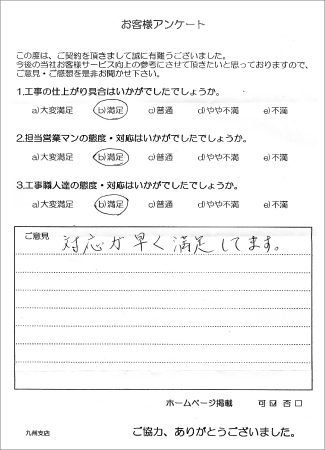 お客様アンケート
この度は、ご契約を頂きまして誠に有難うございました。
今後の当社お客様サービス向上の参考にさせて頂きたいと思っておりますので、
ご意見・ご感想を是非お聞かせ下さい。
1.工事の仕上がり具合はいかがでしたでしょうか。
a)大変満足 b)満足 c)普通 d)やや不満 e)不満
2.担当営業マンの態度・対応はいかがでしたでしょうか。
a)大変満足 b)満足 c)普通 d)やや不満 e)不満
3.工事職人達の態度・対応はいかがでしたでしょうか。
a)大変満足 b)満足 c)普通 d)やや不満 e)不満
ご意見 対応が早く満足してます。
ホームページ掲載 可 ☑ 否 □
九州支店 ご協力、ありがとうございました。